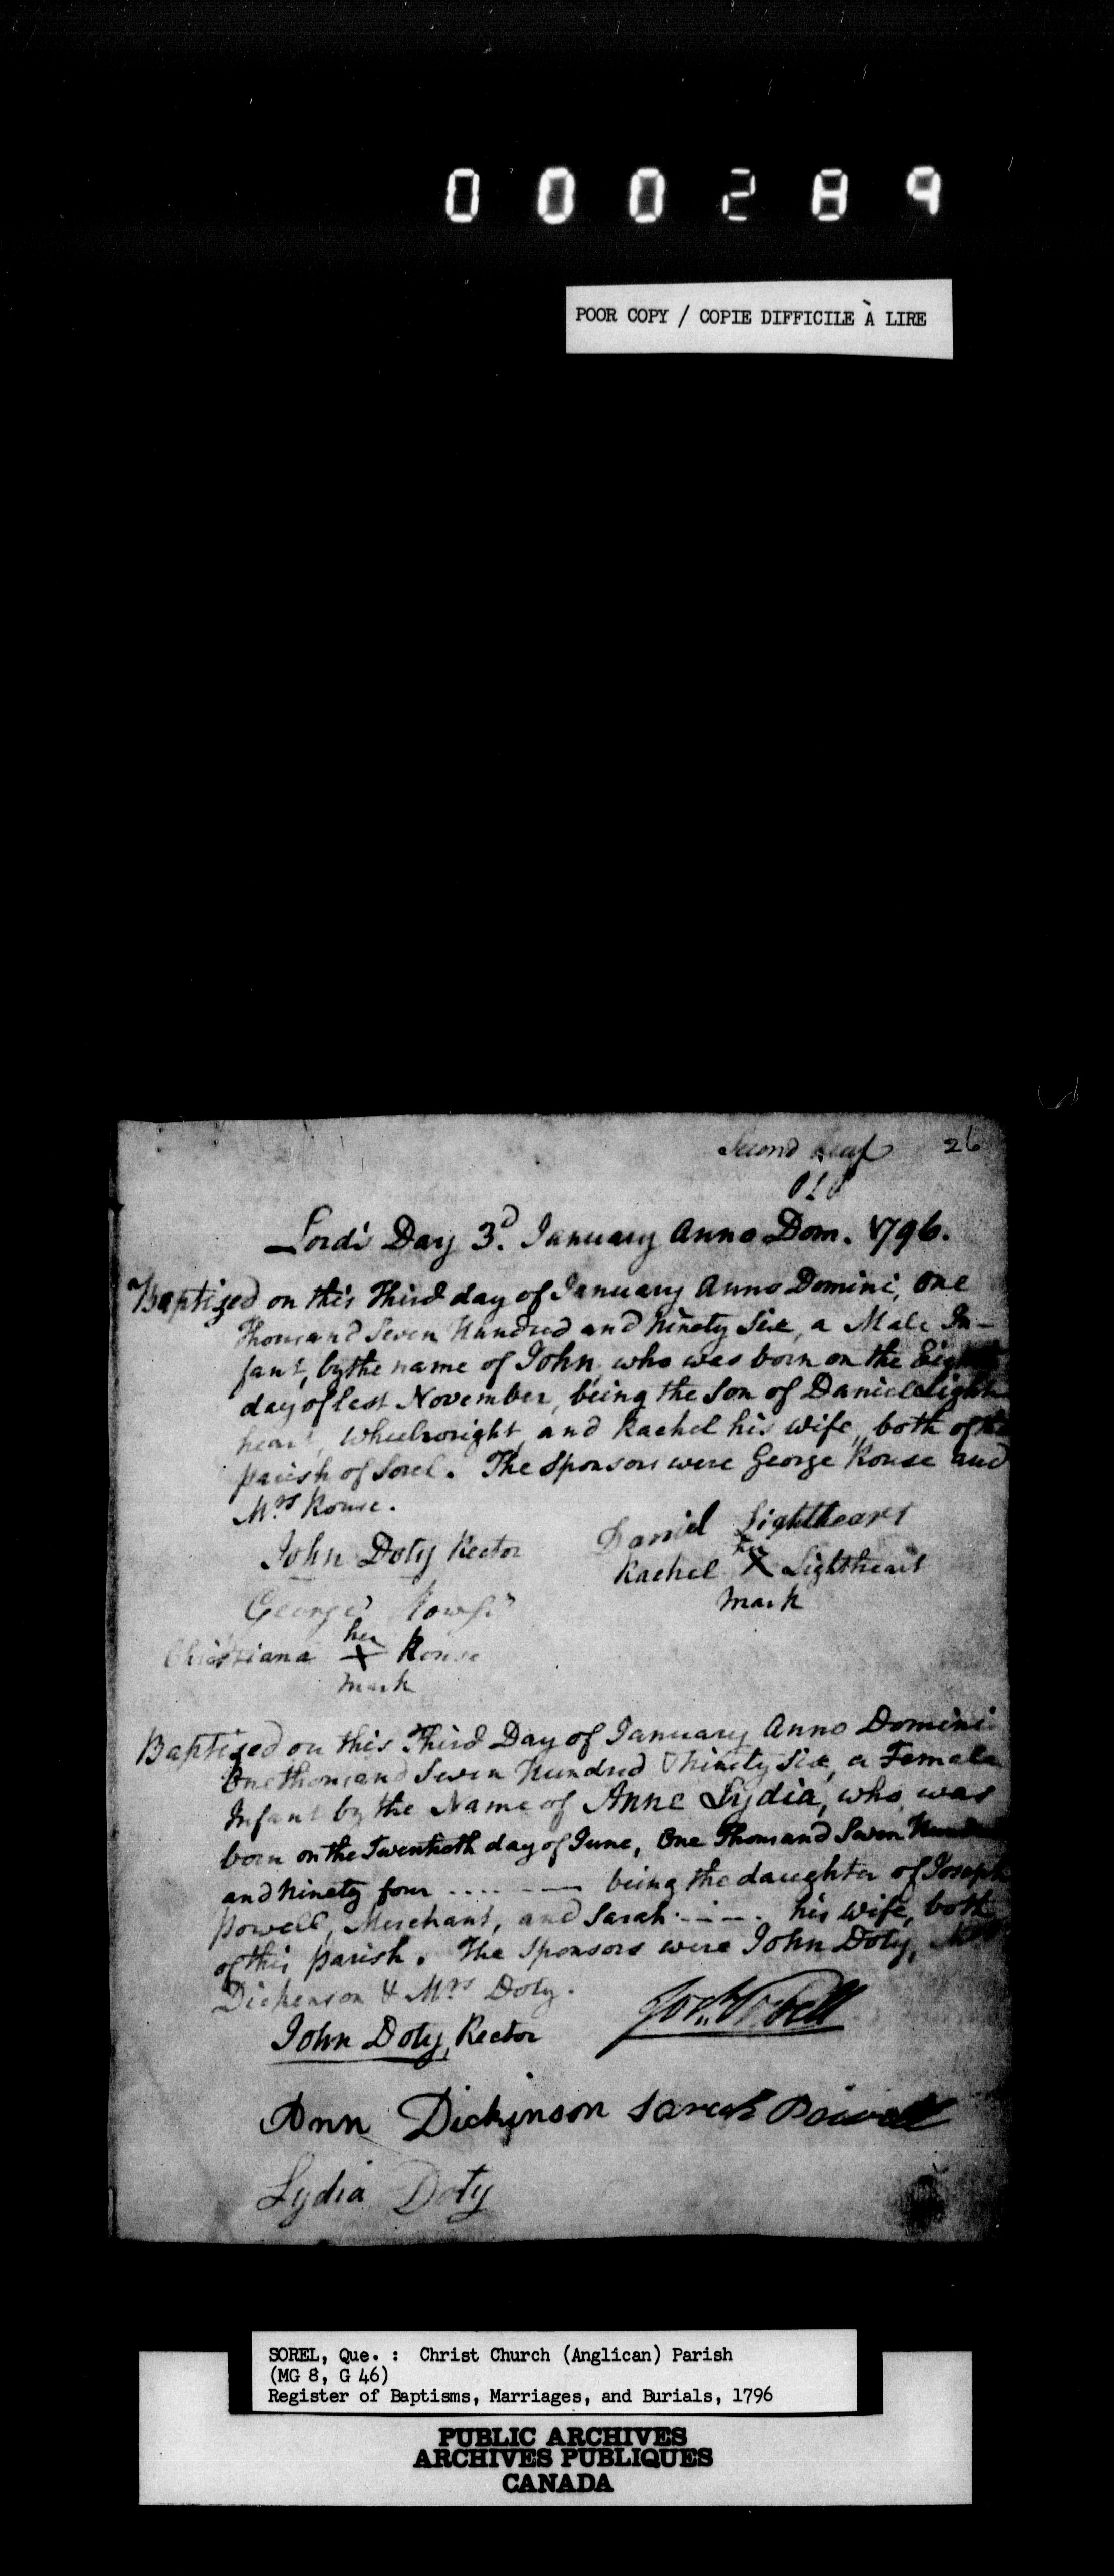 000289
POOR COPY / COPIE DIFFICILE À LIRE
Second Leaf 26
Lord's Day 3.d January Anno Dom. 1796.
Baptized on this Third day of January Anno Domini, One
Thousand Seven Hundred and Ninety Six, a Male In-
fant, by the name of John, who was born on the
day of last November, being the Son of Daniel Light
heart, Wheelwright, and Rachel his wife, both of
parish of Sorel. The Sponsors were George Rouse and
Mrs Rouse.
John Doty Rector Daniel Lightheart
Rachel her X Lightheart
mark
George
Christiana her X Rouse
mark
Baptized on this Third Day of January Anno Domini
One thousand Seven Hundred & Ninety Six, a Female
Infant by the Name of Anne Lydia, who was
born on the Twentieth day of June, One Thousand Seven Hundred
and Ninety four .... — being the daughter of Joseph
Powell, Merchant, and Sarah . - . - . his Wife, both
of this parish. The Sponsors were John Doty,
Dickenson & Mrs Doty.
John Doty, Rector
Ann Dickinson Sarah Powell
Lydia Doty
SOREL, Que. : Christ Church (Anglican) Parish
(MG 8, G 46)
Register of Baptisms, Marriages, and Burials, 1796
PUBLIC ARCHIVES
ARCHIVES PUBLIQUES
CANADA